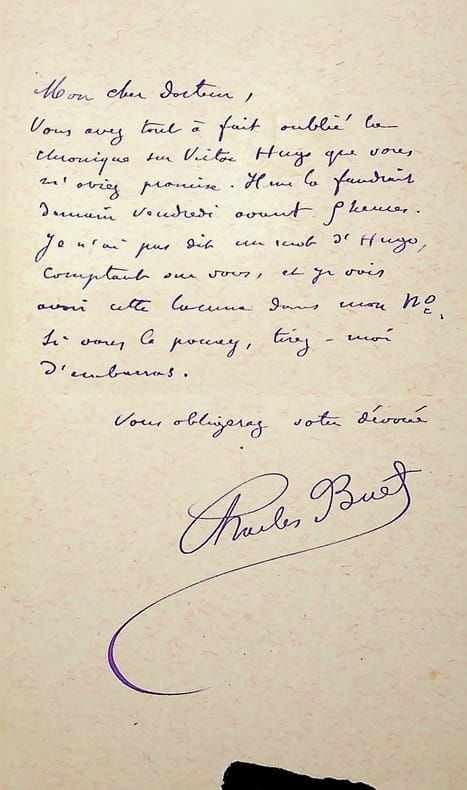 Mon cher docteur,
Vous avez tout à fait oublié la
chronique sur Victor Hugo que vous
m'aviez promise. Il me la faudrait
demain vendredi avant heures.
Je n'ai pas dit un mot d'Hugo,
comptant sur vous, et je vais
avoir cette lacune dans mon No.
Si vous le pouvez, tirez-moi
d'embarras.
Vous obligerez votre dévoué
Charles Buet